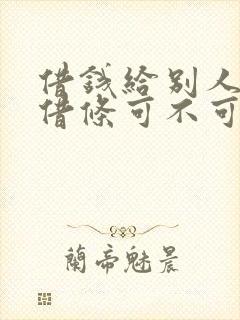 借錢給別人
借條可不可
蘭帝魅晨